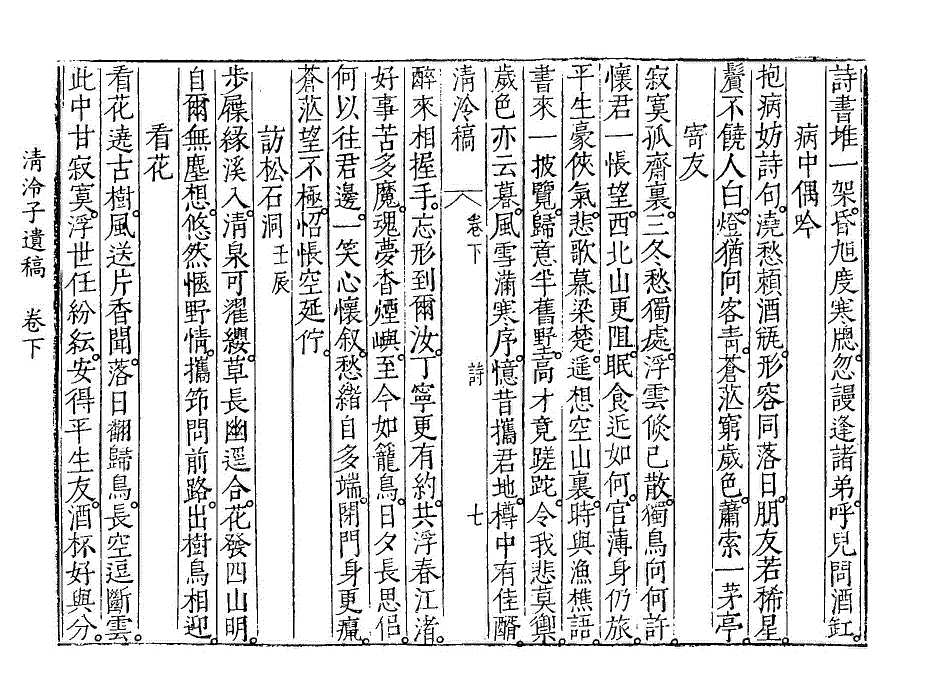 詩書堆一架昏旭度寒牕忽謾逢諸弟呼兒問酒缸
病中偶吟
抱病妨詩句澆愁賴酒瓶形容同落日朋友若稀星
鬢不饒人白燈猶向客靑蒼茫窮歲色蕭索一茅亭
寄友
寂寞孤齋裏三冬愁獨處浮雲倐已散獨鳥向何許
懷君一悵望西北山更阻眠食近如何官薄身仍旅
平生豪俠氣悲歌慕梁楚遥想空山裏時與漁樵語
書來一披覽歸意半舊野壼高才竟蹉跎令我悲莫禦
歲色亦云暮風雪滿寒序憶昔攜君地樽中有佳醑
淸泠稿 卷下 詩 七
醉來相握手忘形到爾汝丁寧更有約共浮春江渚
好事苦多魔魂夢杳煙嶼至今如籠鳥日夕長思侣
何以往君邊一笑心懷叙愁緖自多端閉門身更癙
蒼茫望不極怊悵空延佇
訪松石洞 壬辰
步屧緣溪入淸泉可濯纓草長幽逕合花發四山明
自爾無塵想悠然愜野情攜笻問前路出樹鳥相迎
看花
看花遶古樹風送片香聞落日翻歸鳥長空逗斷雲
此中甘寂寞浮世任紛紜安得平生友酒杯好與分
淸泠子遺稿 卷下